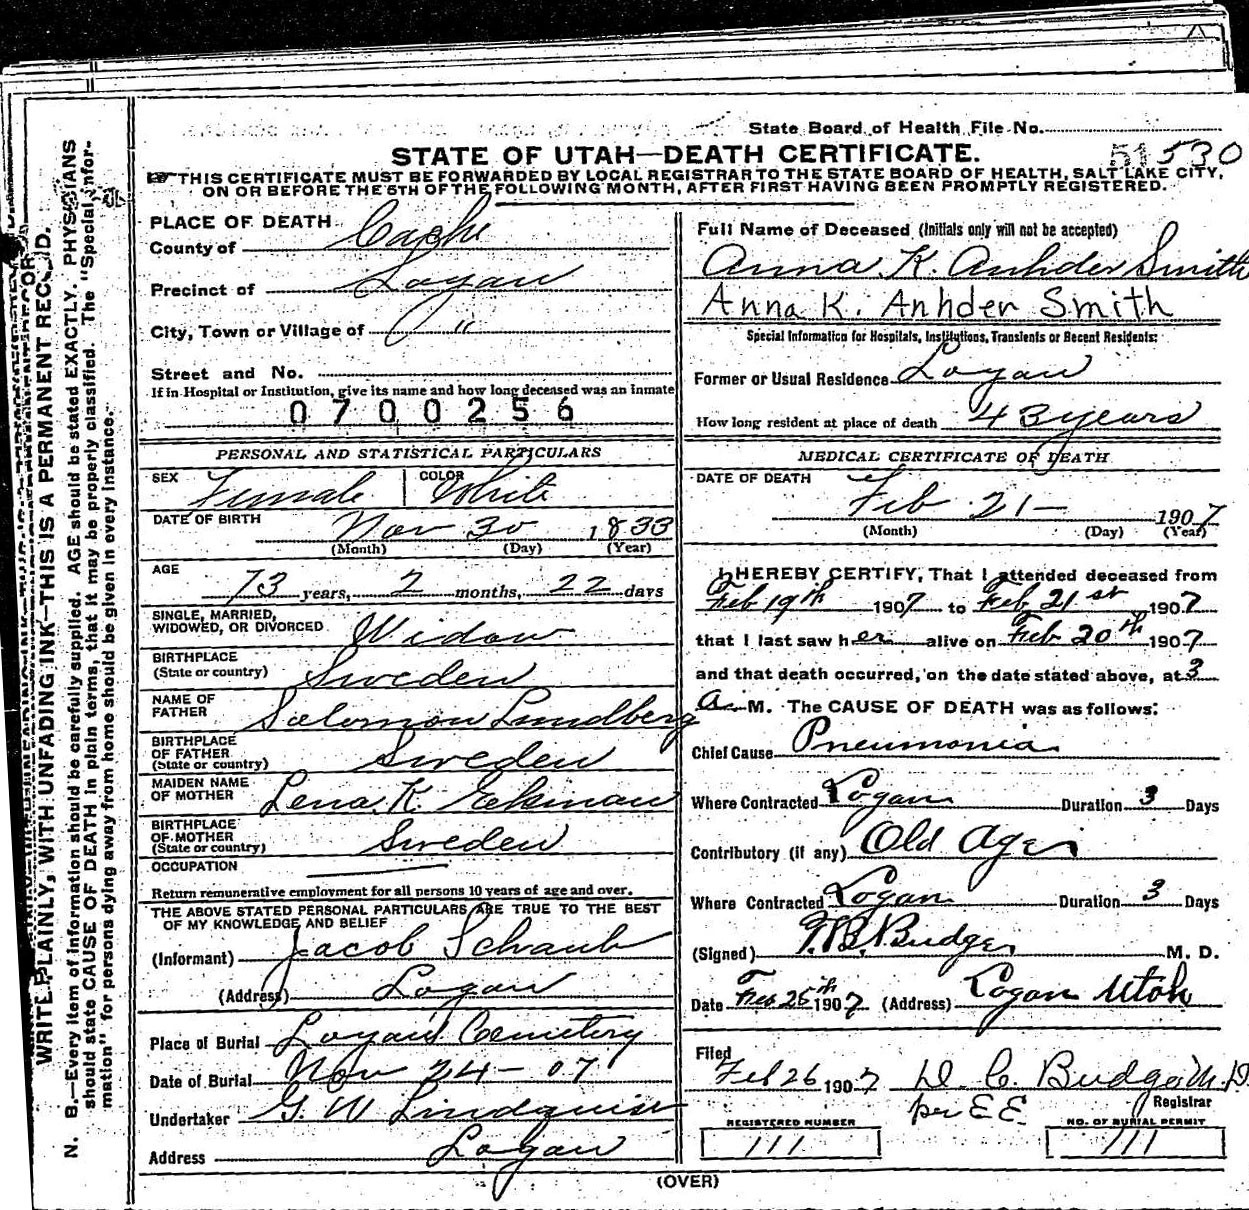 State Board of Health File No.
51 530
STATE OF UTAH—DEATH CERTIFICATE.
THIS CERTIFICATE MUST BE FORWARDED BY LOCAL REGISTRAR TO THE STATE BOARD OF HEALTH, SALT LAKE CITY,
ON OR BEFORE THE 5TH OF THE FOLLOWING MONTH, AFTER FIRST HAVING BEEN PROMPTLY REGISTERED.
WRITE PLAINLY, WITH UNFADING INK—THIS IS A PERMANENT RECORD.
N. B.—Every item of information should be carefully supplied. AGE should be stated EXACTLY. PHYSICIANS
should state CAUSE OF DEATH in plain terms, that it may be properly classified. The "Special Infor-
mation" for persons dying away from home should be given in every instance.
PLACE OF DEATH
County of Cache
Precinct of Logan
City, Town or Village of "
Street and No.
If in Hospital or Institution, give its name and how long deceased was an inmate
0700256
PERSONAL AND STATISTICAL PARTICULARS
SEX Female COLOR White
DATE OF BIRTH Nov 30 1833
(Month) (Day) (Year)
AGE
73 years, 2 months, 22 days
SINGLE, MARRIED,
WIDOWED, OR DIVORCED Widow
BIRTHPLACE
(State or country) Sweden
NAME OF
FATHER Salomon Lundberg
BIRTHPLACE
OF FATHER
(State or country) Sweden
MAIDEN NAME
OF MOTHER Lena K. Eekman
BIRTHPLACE
OF MOTHER
(State or country) Sweden
OCCUPATION
Return remunerative employment for all persons 10 years of age and over.
THE ABOVE STATED PERSONAL PARTICULARS ARE TRUE TO THE BEST
OF MY KNOWLEDGE AND BELIEF
(Informant) Jacob Schaub
(Address) Logan
Place of Burial Logan Cemetery
Date of Burial Nov 24 - 07
Undertaker G. W Lindquist
Address Logan
Full Name of Deceased (Initials only will not be accepted)
Anna K. Anhder Smith
Anna K. Anhder Smith
Special Information for Hospitals, Institutions, Transients or Recent Residents:
Former or Usual Residence Logan
How long resident at place of death 43 years
MEDICAL CERTIFICATE OF DEATH
DATE OF DEATH
Feb 21 — 1907
(Month) (Day) (Year)
I HEREBY CERTIFY, That I attended deceased from
Feb 19th 1907 to Feb 21st 1907
that I last saw her alive on Feb 20th 1907
and that death occurred, on the date stated above, at 3
a. M. The CAUSE OF DEATH was as follows:
Chief Cause Pneumonia
Where Contracted Logan Duration 3 Days
Contributory (if any) Old Age
Where Contracted Logan Duration 3 Days
(Signed) T.B. Budge M. D.
Date Feb 25th 1907 (Address) Logan Utah
Filed
Feb 26 1907 D. C. Budge M.D.
per E E. Registrar
REGISTERED NUMBER
111
NO. OF BURIAL PERMIT
111
(OVER)